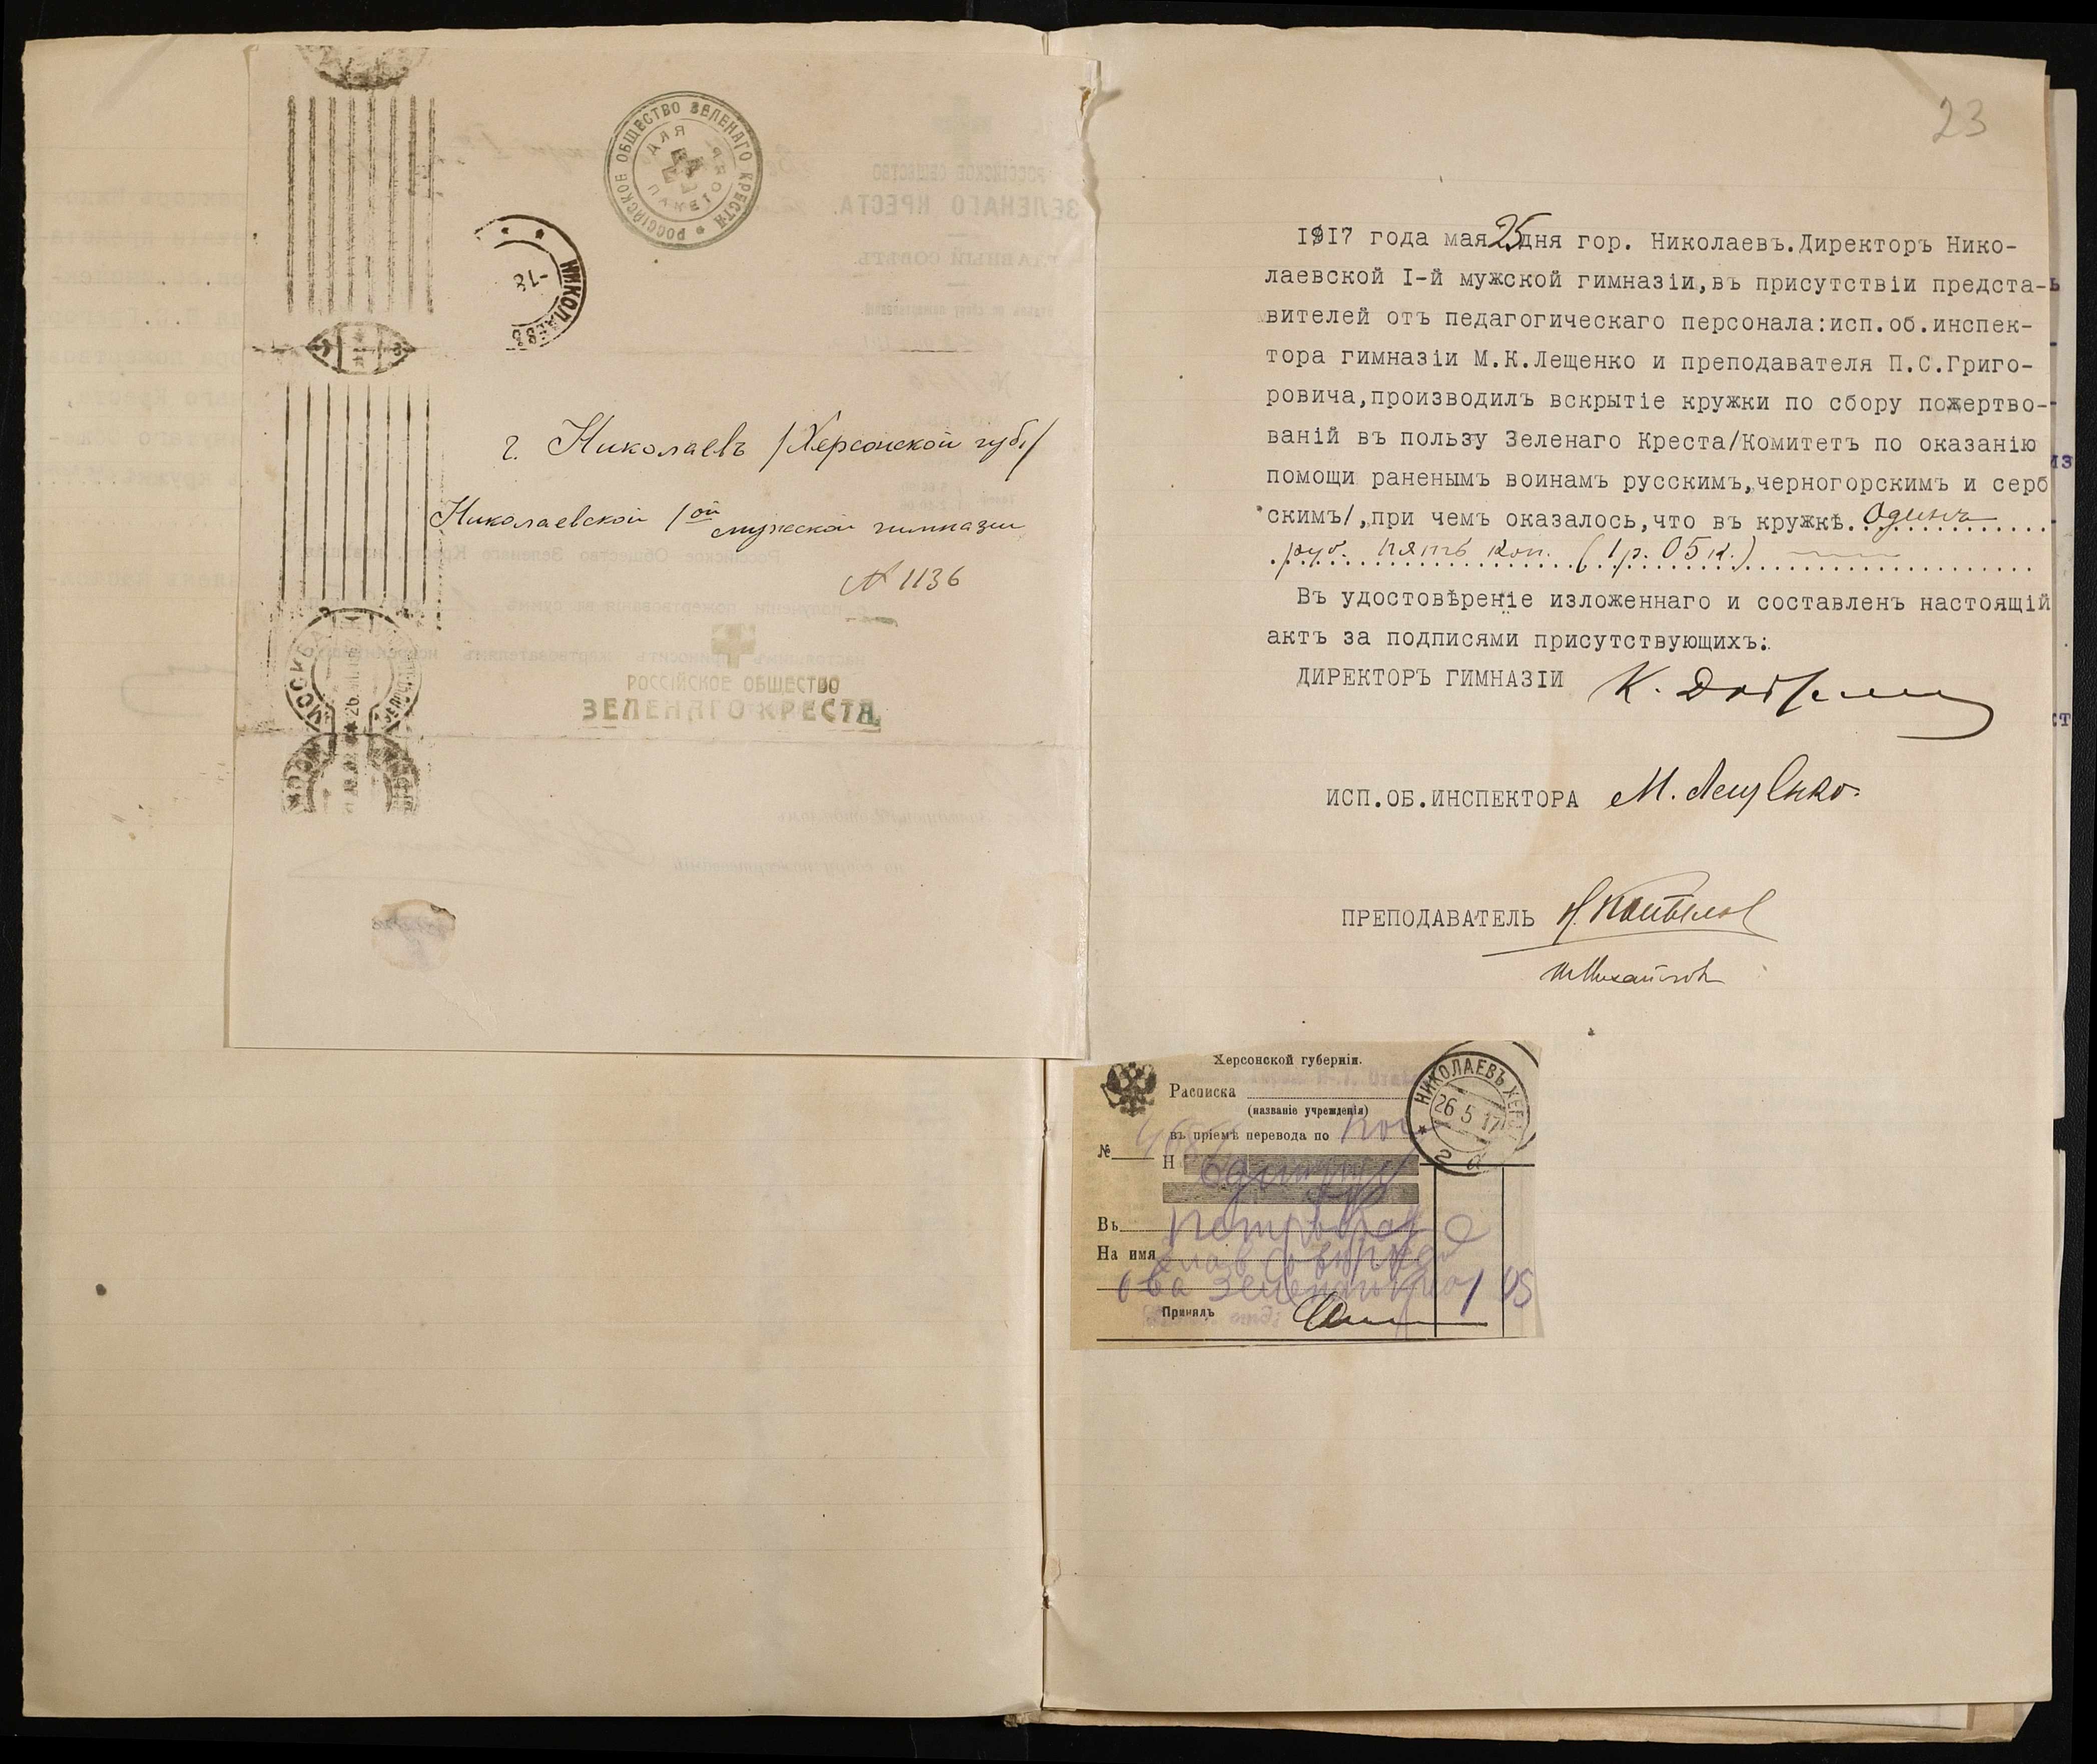 РОССІЙСКОЕ ОБЩЕСТВО ЗЕЛЕНАГО КРЕСТА
ДЛЯ
НИКОЛАЕВЪ
г. Николаевъ /Херсонской губ/
Николаевской 1ой мужской гимназіи
№ 1136
РОССІЙСКОЕ ОБЩЕСТВО
ЗЕЛЕНАГО КРЕСТА
МОСКВА
23
1917 года мая 25 дня гор. Николаевъ.Директоръ Нико-
лаевской I-й мужской гимназіи,въ присутствіи предста-
вителей отъ педагогическаго персонала:исп.об.инспек-
тора гимназіи М.К.Лещенко и преподавателя П.С.Григо-
ровича,производилъ вскрытіе кружки по сбору пожертво-
ваній въ пользу Зеленаго Креста/Комитетъ по оказанію
помощи раненымъ воинамъ русскимъ,черногорскимъ и серб
скимъ/,при чемъ оказалось,что въ кружкѣ. Одинъ
руб. пять коп. (1 р. 05 к.)
Въ удостовѣреніе изложеннаго и составленъ настоящій
актъ за подписями присутствующихъ:
ДИРЕКТОРЪ ГИМНАЗІИ К.
ИСП.ОБ.ИНСПЕКТОРА М. Лещенко.
ПРЕПОДАВАТЕЛЬ
Херсонской губерніи.
Расписка
(названіе учрежденія)
въ пріемѣ перевода по
№
Н
Въ Петроград
На имя
о-ва Зеленаго 1 05
Принялъ
НИКОЛАЕВЪ ХЕРС.
26 5 17